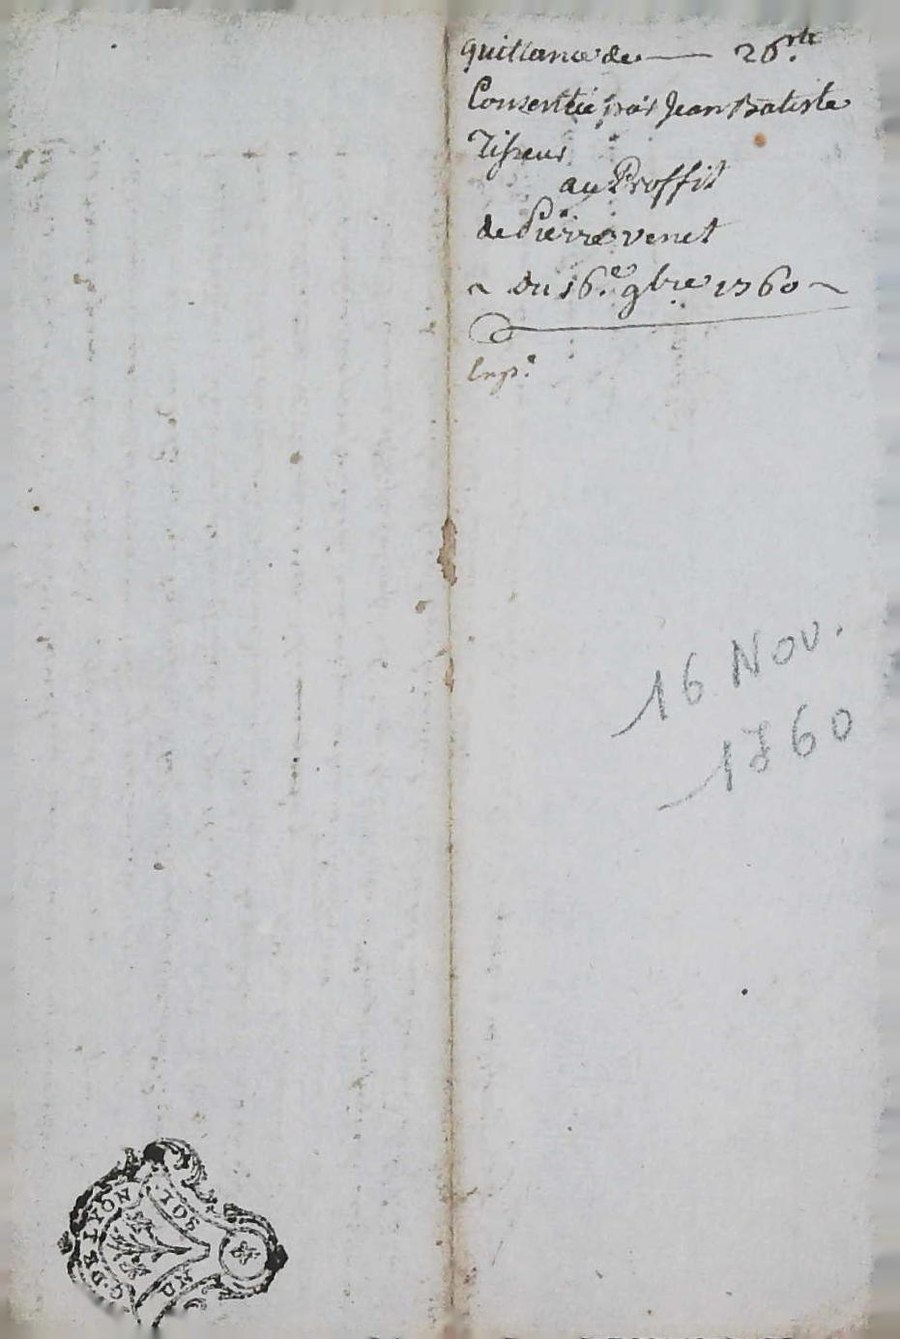 quittance de — 26.rte
Consentüe par Jean Batiste
Tisseur
au Proffit
de Pierre venet
~ du 16.e 9bre 1760 ~
Exp.e
16 Nov.
1760
G. DE LYON
SOL